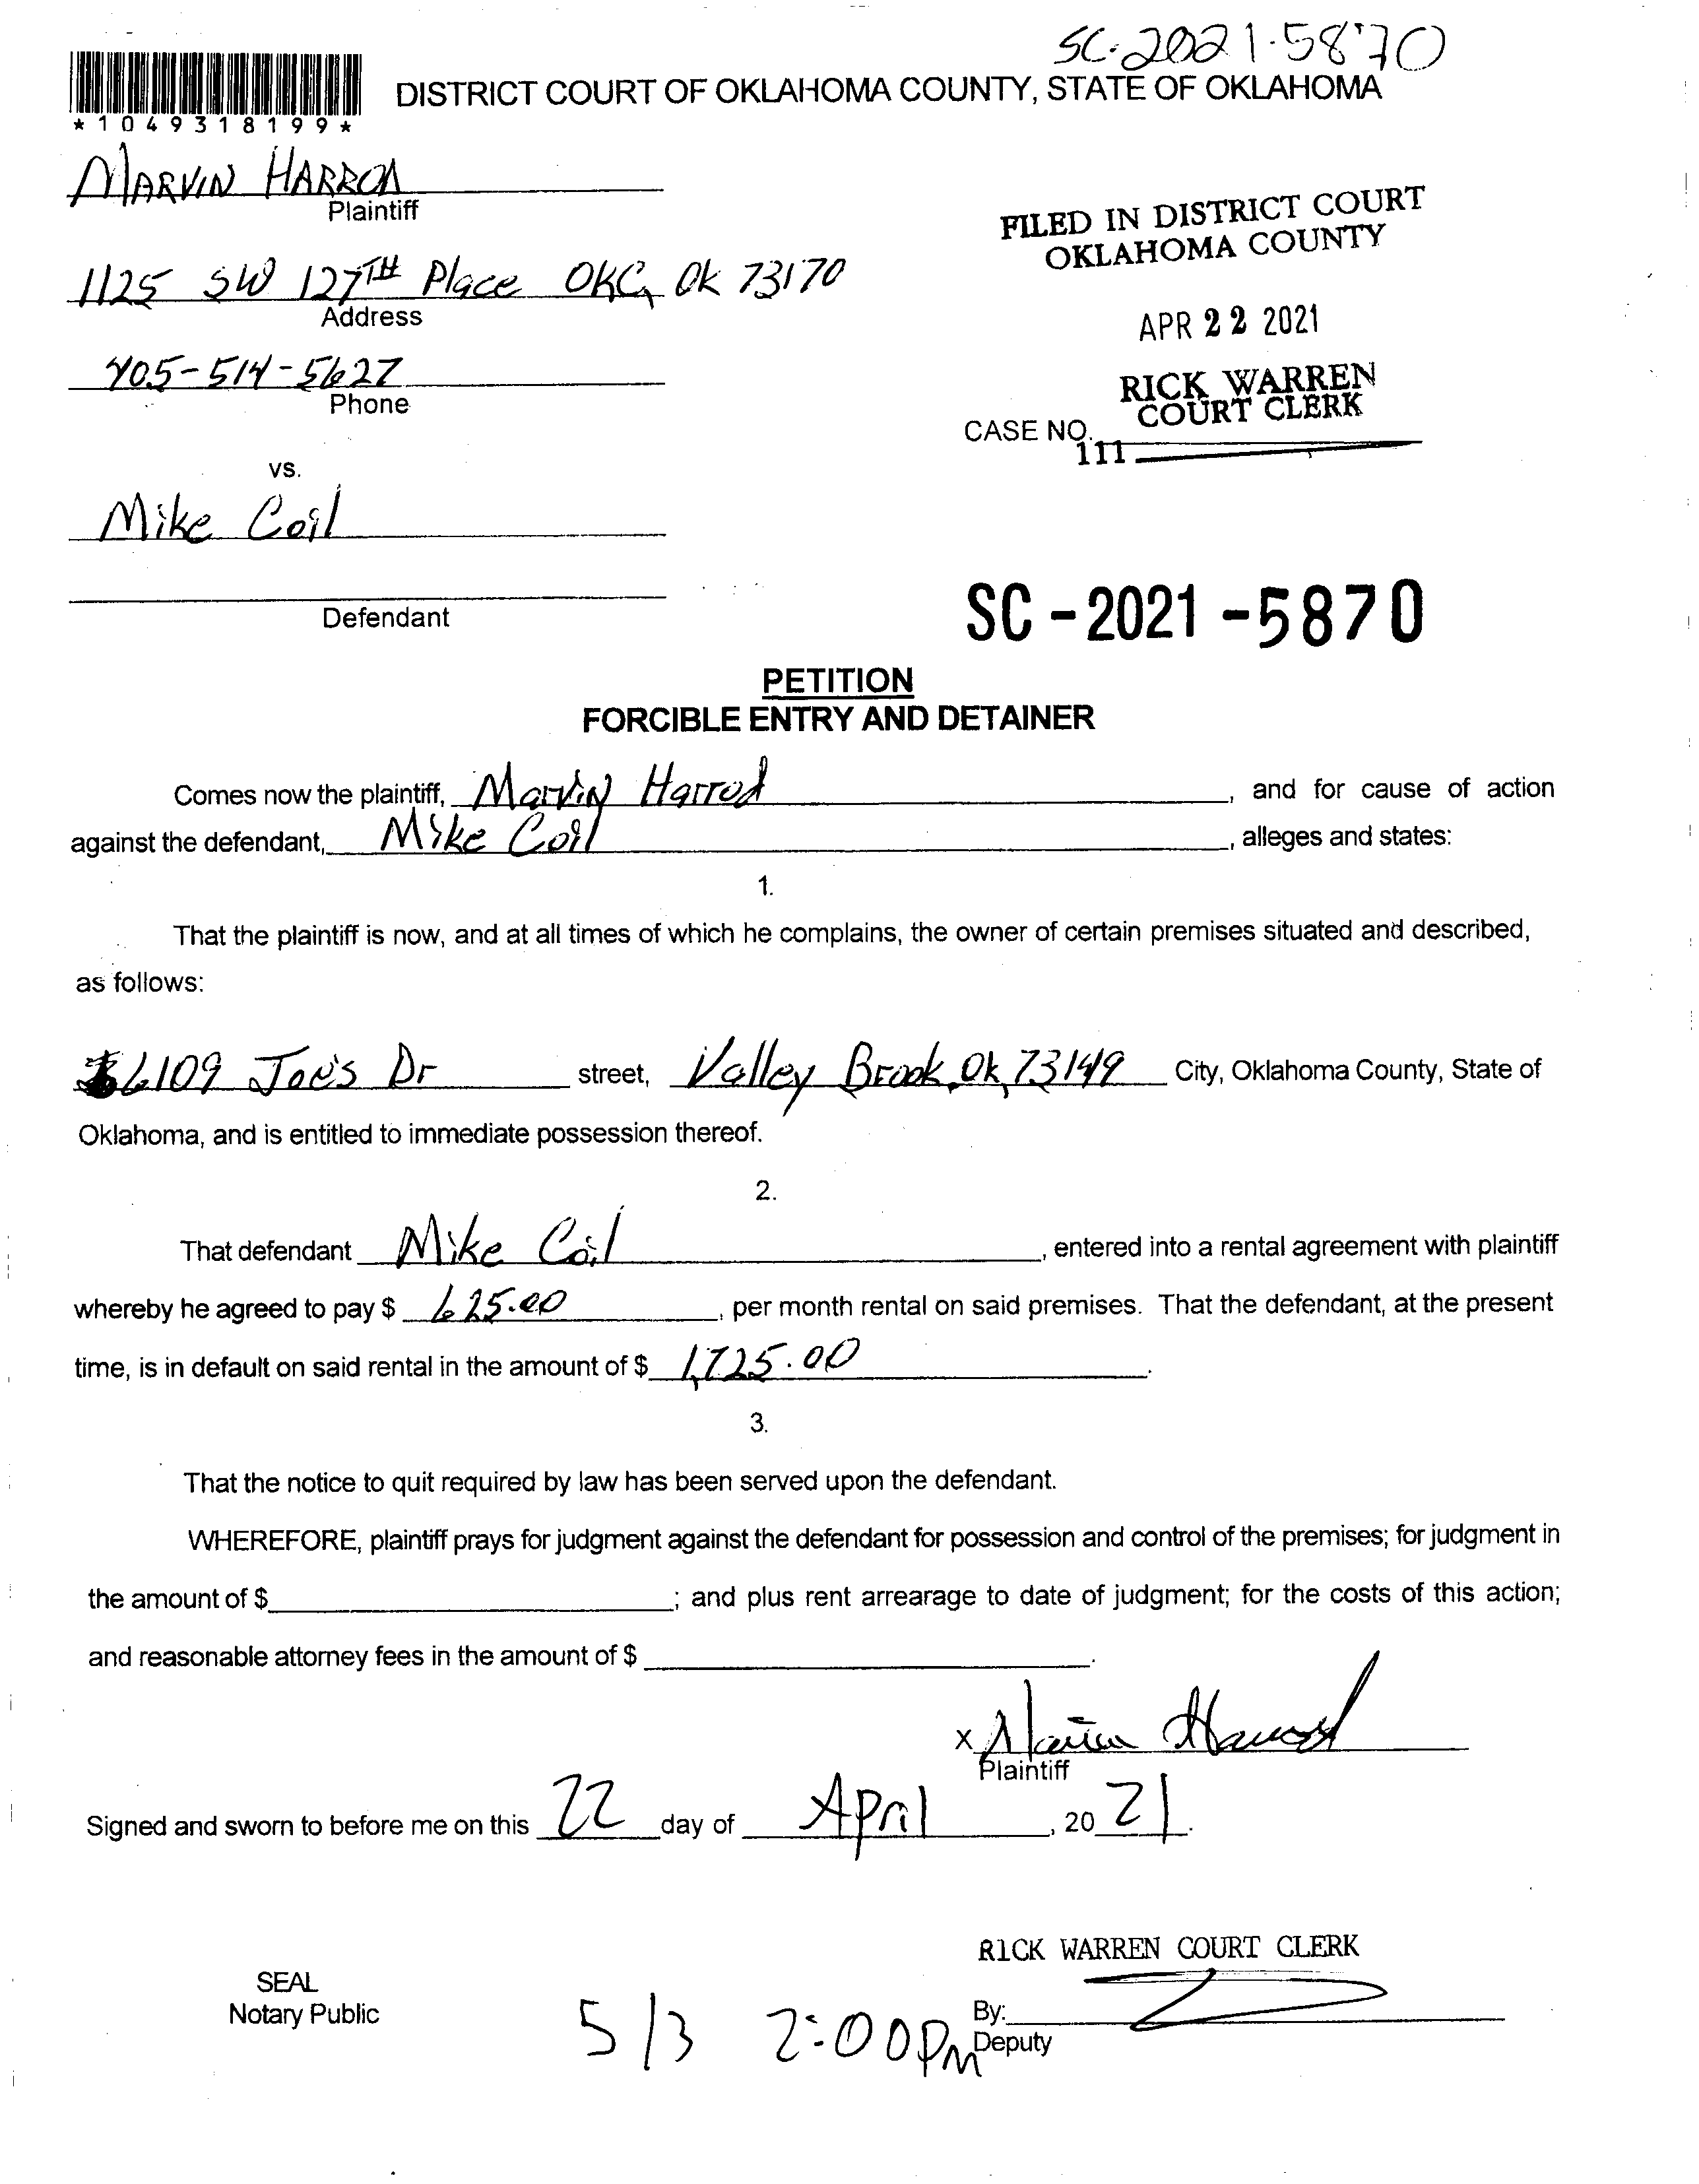 SC-2021-5870
DISTRICT COURT OF OKLAHOMA COUNTY, STATE OF OKLAHOMA
*1049318199*
MARVIN HARROD
Plaintiff
1125 SW 127TH Place OKC, Ok 73170
Address
405-514-5627
Phone
FILED IN DISTRICT COURT
OKLAHOMA COUNTY
APR 22 2021
RICK WARREN
COURT CLERK
CASE NO.
111
vs.
Mike Coil
Defendant
SC-2021-5870
PETITION
FORCIBLE ENTRY AND DETAINER
Comes now the plaintiff, Marvin Harrod, and for cause of action
against the defendant, Mike Coil, alleges and states:
1.
That the plaintiff is now, and at all times of which he complains, the owner of certain premises situated and described,
as follows:
6109 Joe's Dr street, Valley Brook, Ok, 73149 City, Oklahoma County, State of
Oklahoma, and is entitled to immediate possession thereof.
2.
That defendant Mike Coil, entered into a rental agreement with plaintiff
whereby he agreed to pay $ 625.00, per month rental on said premises. That the defendant, at the present
time, is in default on said rental in the amount of $ 1,725.00.
3.
That the notice to quit required by law has been served upon the defendant.
WHEREFORE, plaintiff prays for judgment against the defendant for possession and control of the premises; for judgment in
the amount of $; and plus rent arrearage to date of judgment; for the costs of this action;
and reasonable attorney fees in the amount of $.
x Marvin Harrod
Plaintiff
Signed and sworn to before me on this 22 day of April, 2021.
RICK WARREN COURT CLERK
SEAL
Notary Public
By:
Deputy
5/3 2:00PM